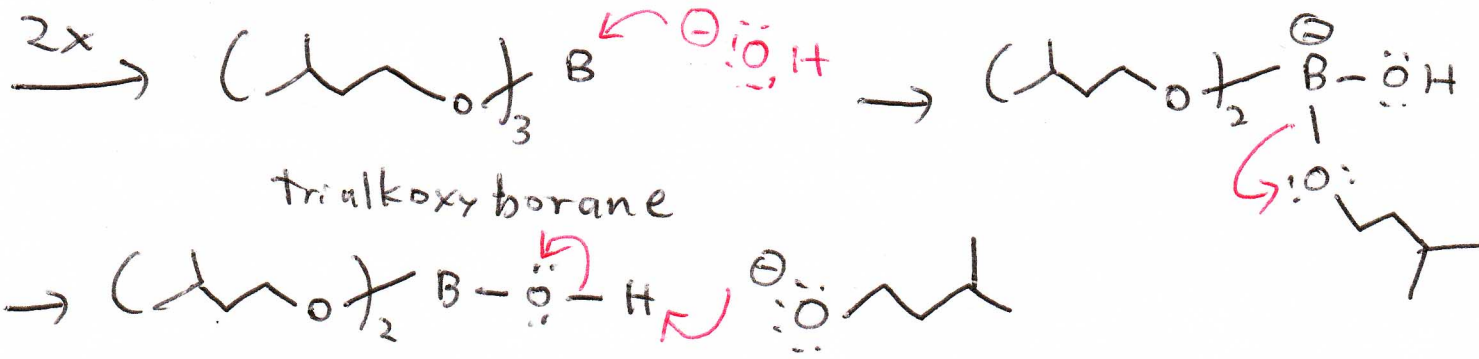 2x ( O )3 B ⊖ :Ö: H ( O )2 B ⊖ – Ö H
:O:
trialkoxyborane
( O )2 B – Ö – H ⊖ :Ö: